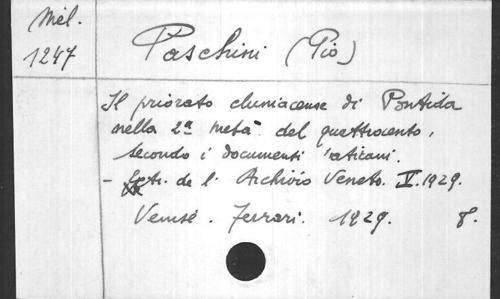 Mél.
1247
Paschini (Pio)
Il priorato cluniacense di Pontida
nella 2ª metà del quattrocento,
secondo i documenti vaticani.
- Estr. de l' Archivio Veneto. V. 1929.
Venise. Ferrari. 1929. 8.